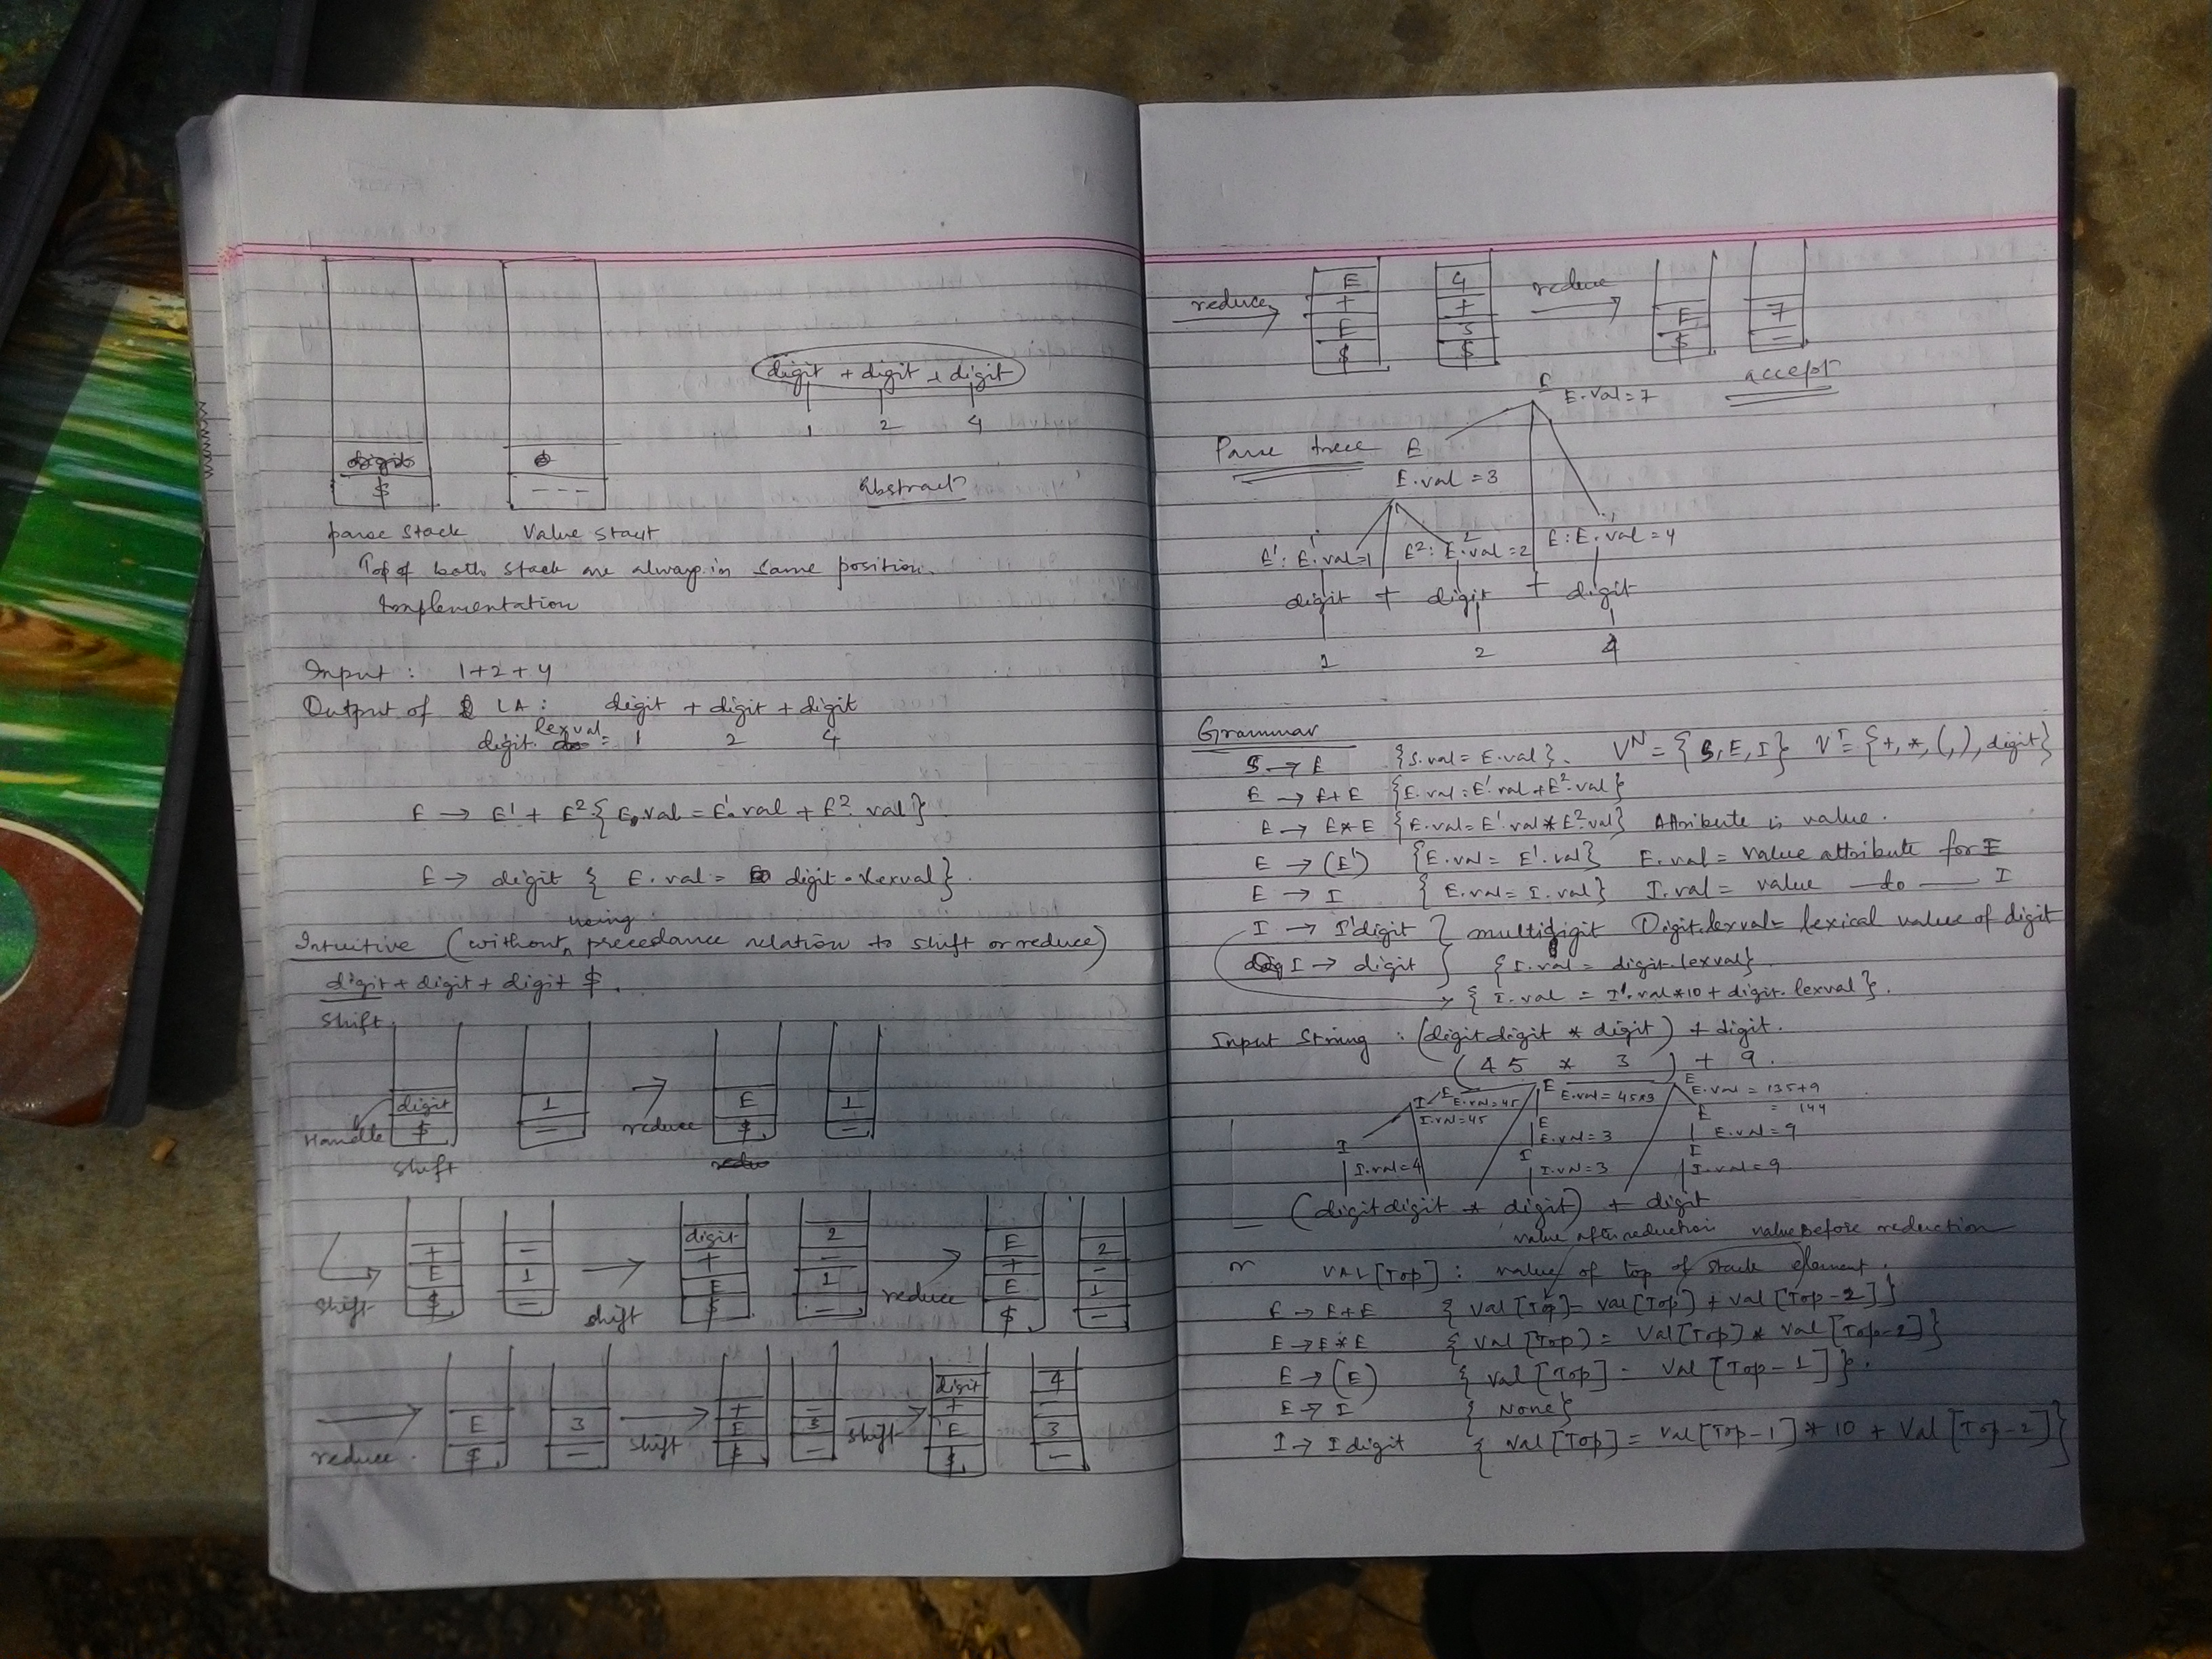 digit + digit + digit
1 2 4
$ - - -
Abstract
parse Stack Value Staut
Top of both stack are always in same position.
Implementation
Input : 1+2+4
Output of LA : digit + digit + digit
digit. lexval = 1 2 4
E → E¹ + E² { E.val = E¹.val + E².val}
E → digit { E.val = digit.lexval}.
Intuitive (without using precedance relation to shift or reduce)
digit + digit + digit $.
Shift
digit 1 E 1
Handle $ - reduce $ -
shift
digit 2 E 2
+ - + - + -
E 1 E 1 E 1
shift $ - shift $ - reduce $ -
digit 4
+ - + -
E 3 E 3 E 3
reduce. $ - shift $ - shift $ -
E 4
reduce + + reduce E 7
E 3 $ -
$ $ accept
E.val=7
Parse tree E
E.val = 3
E¹: E.val=1 E²: E.val=2 E:E.val=4
digit + digit + digit
1 2 4
Grammar
S → E {S.val = E.val}. V^N = {S,E,I} V^T = {+,*,(,),digit}
E → E+E {E.val = E¹.val + E².val}
E → E*E {E.val = E¹.val*E².val} Attribute is value.
E → (E¹) {E.val = E¹.val} E.val = value attribute for E
E → I { E.val = I.val} I.val = value —do— I
I → I¹digit } multidigit Digit.lexval = lexical value of digit
I → digit } { I.val = digit.lexval}
{ I.val = I¹.val*10 + digit.lexval}.
Input String : (digitdigit * digit) + digit.
( 45 * 3 ) + 9.
I E E E
E.val=45 E.val = 45*3 E.val = 135+9
I.val=45 = 144
E E
I E.val=3 E.val=9
I I
I.val=4 I.val=3 I.val=9
(digitdigit * digit) + digit
value after reduction value Before reduction
or VAL[Top] : value of top of stack element.
E → E+E { val[Top] = val[Top] + val[Top-2]}
E → E*E { val[Top] = Val[Top] * val[Top-2]}
E → (E) { val[Top] = Val[Top-1]}.
E → I { None}
I → I digit { val[Top] = val[Top-1] * 10 + Val[Top-2]}